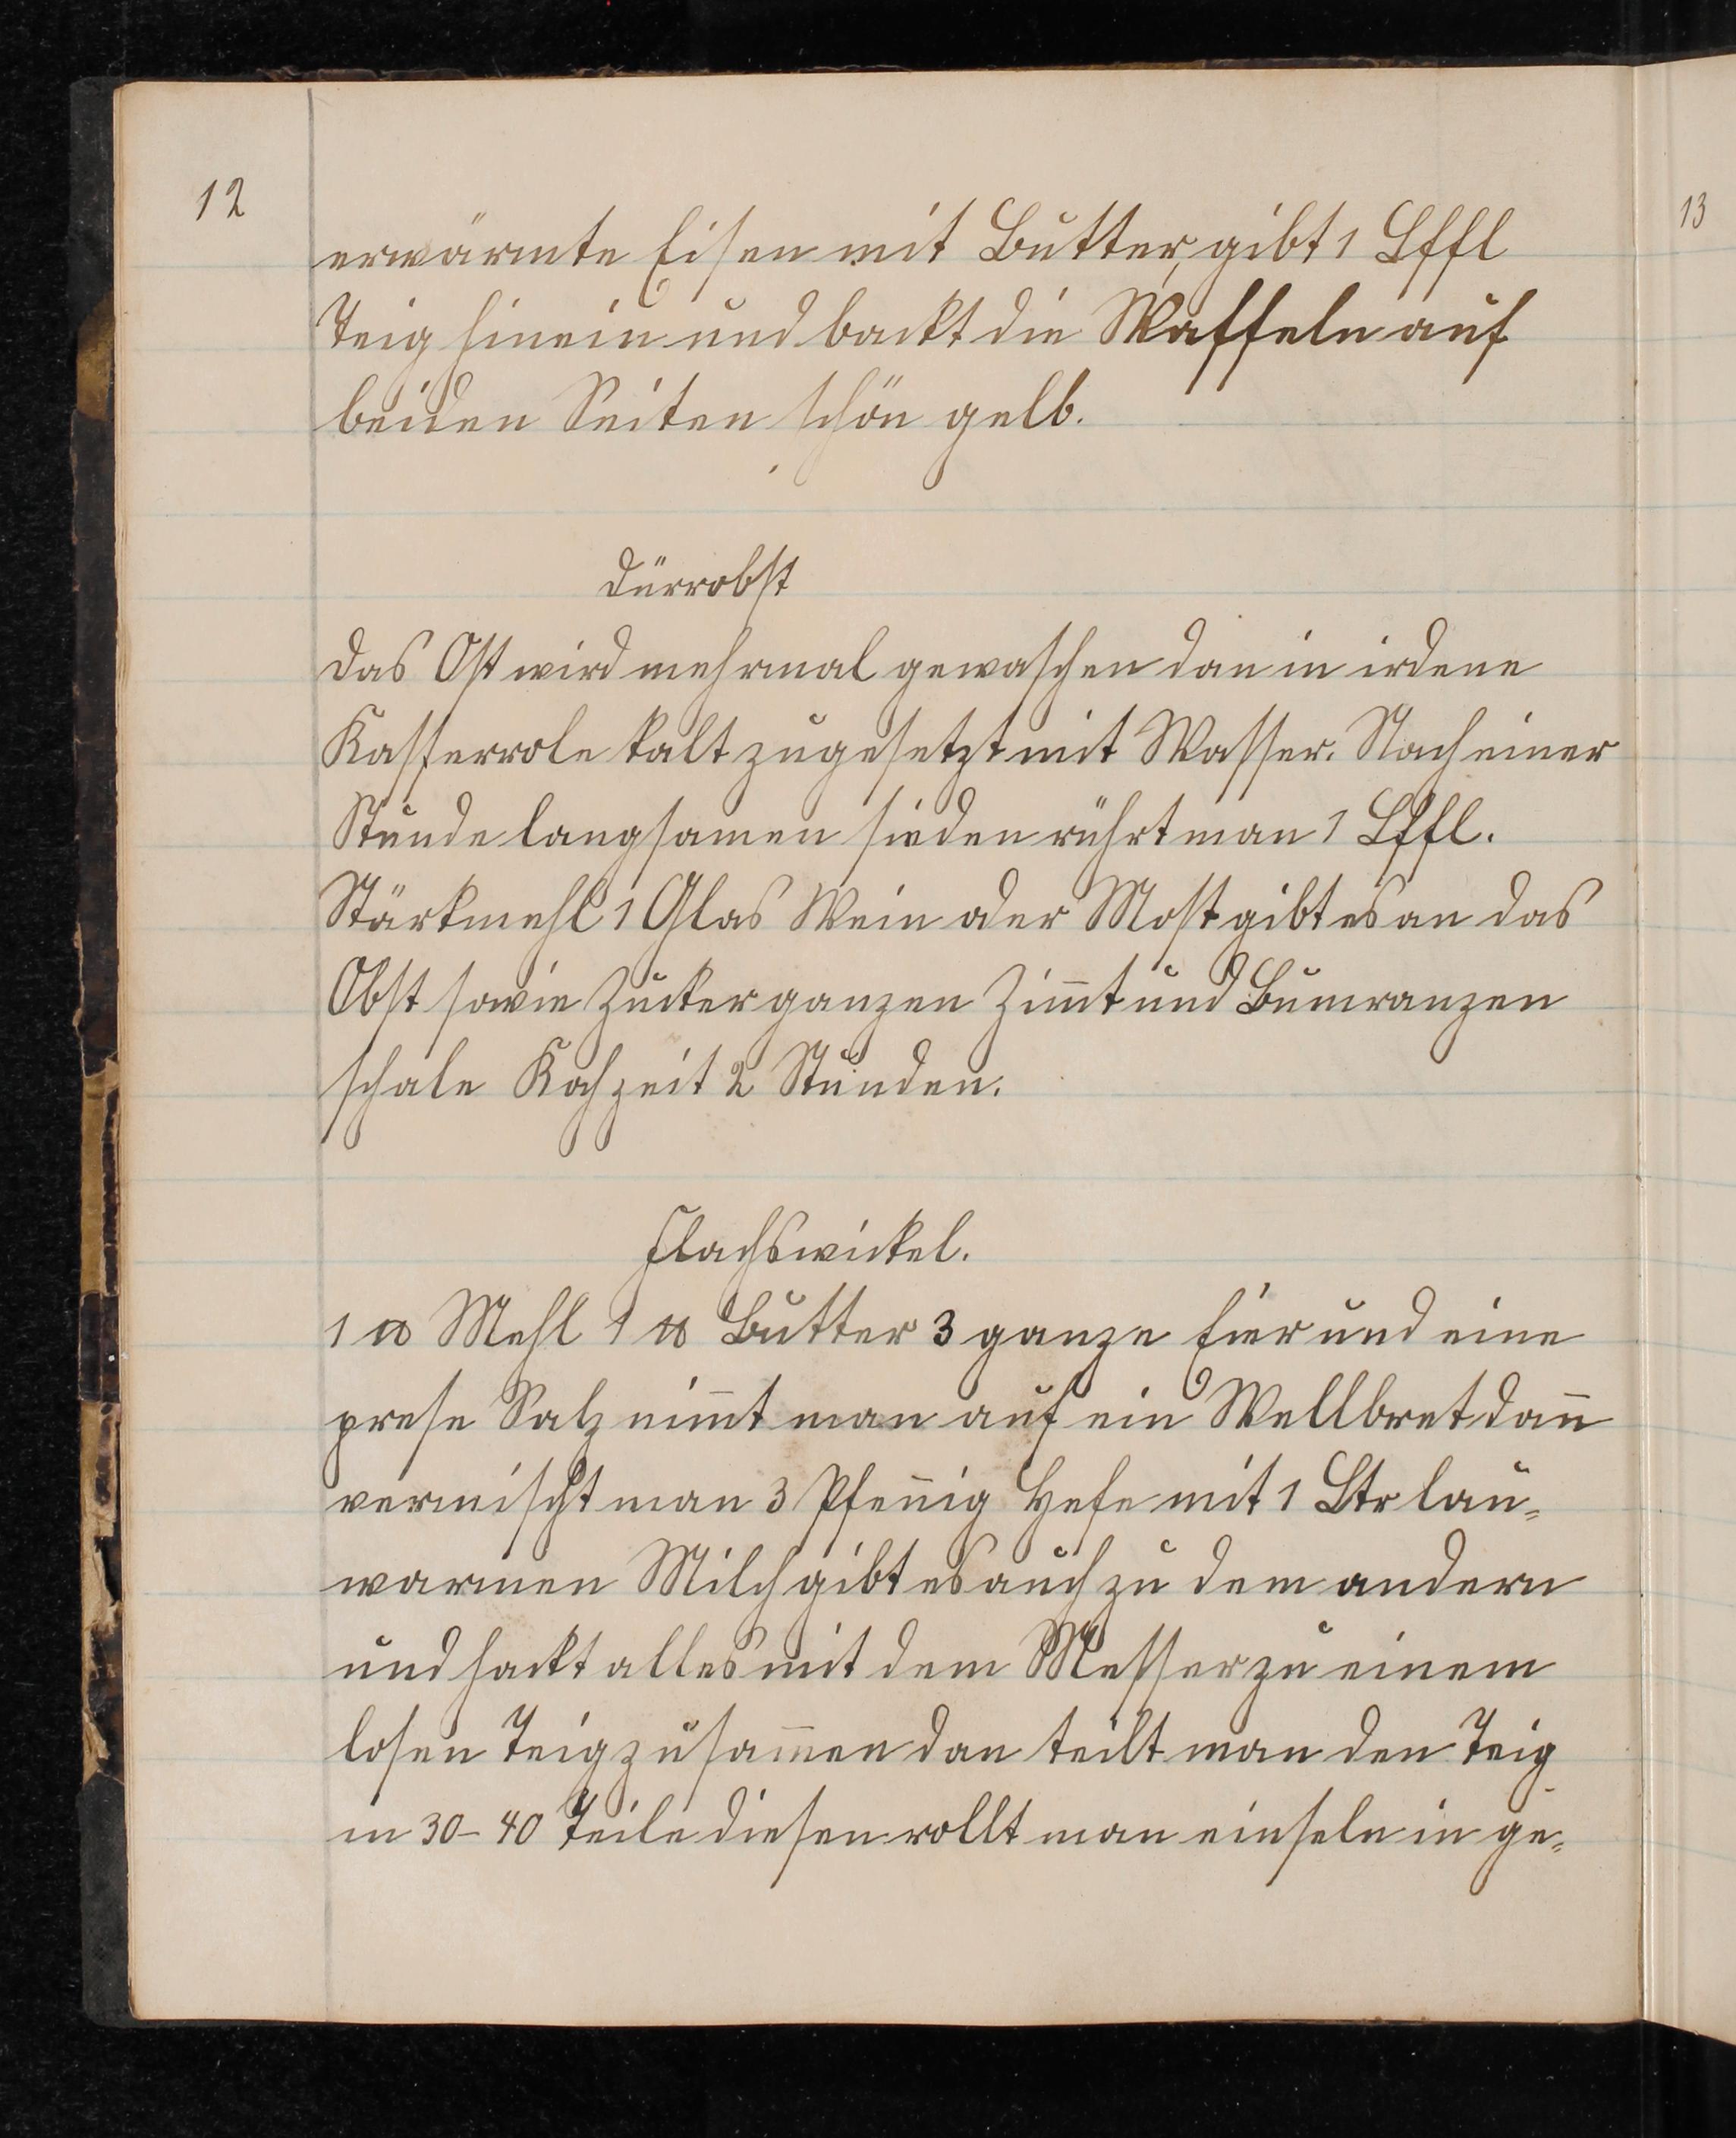 12
erwärmte Eisen mit Butter, gibt 1 Lffl
Teig hinein und backt die Waffeln auf
beiden Seiten schön gelb.
Dürrobst
Das Ost wird mehrmal gewaschen dan in irdene
Kasserrole kalt zugesetzt mit Wasser. Nach einer
Stunde langsamen sieden rührt man 1 Lffl.
Stärkmehl 1 Glas Wein oder Most gibt es an das
Obst sowie Zucker ganzen Zim̄t und Bumranzen
schale Kochzeit 2 Stunden.
Flachswickel.
1 ℔ Mehl 1 ℔ Butter 3 ganze Eier und eine
prese Salz nim̄t man auf ein Wellbret dan̄
vermischt man 3 Pfen̄ig Hefe mit 1 Ltr lau„
warmen Milch gibt es auch zu dem andern
und hackt alles mit dem Messer zu einem
losen Teig zusam̄en dan teilt man den Teig
in 30 – 40 Teile diesen rollt man einseln in ge„
13